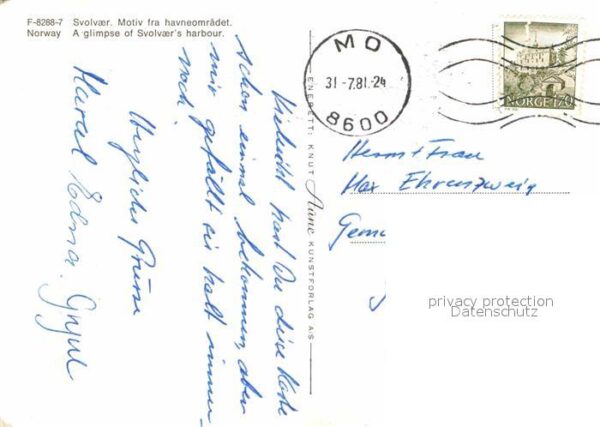 F-8268-7 Svolvær. Motiv fra havneområdet.
Norway A glimpse of Svolvær's harbour.
Vielleicht hast Du diese Karte
schon einmal bekommen, aber
mir gefällt sie halt immer
noch.
Herzliche Grüsse
Edna.
ENERETT: KNUT Aune KUNSTFORLAG A/S
MO
31-7.81.24
8600
NORGE 170
Herrn + Frau
Max Ehrenzweig
Geme
privacy protection
Datenschutz